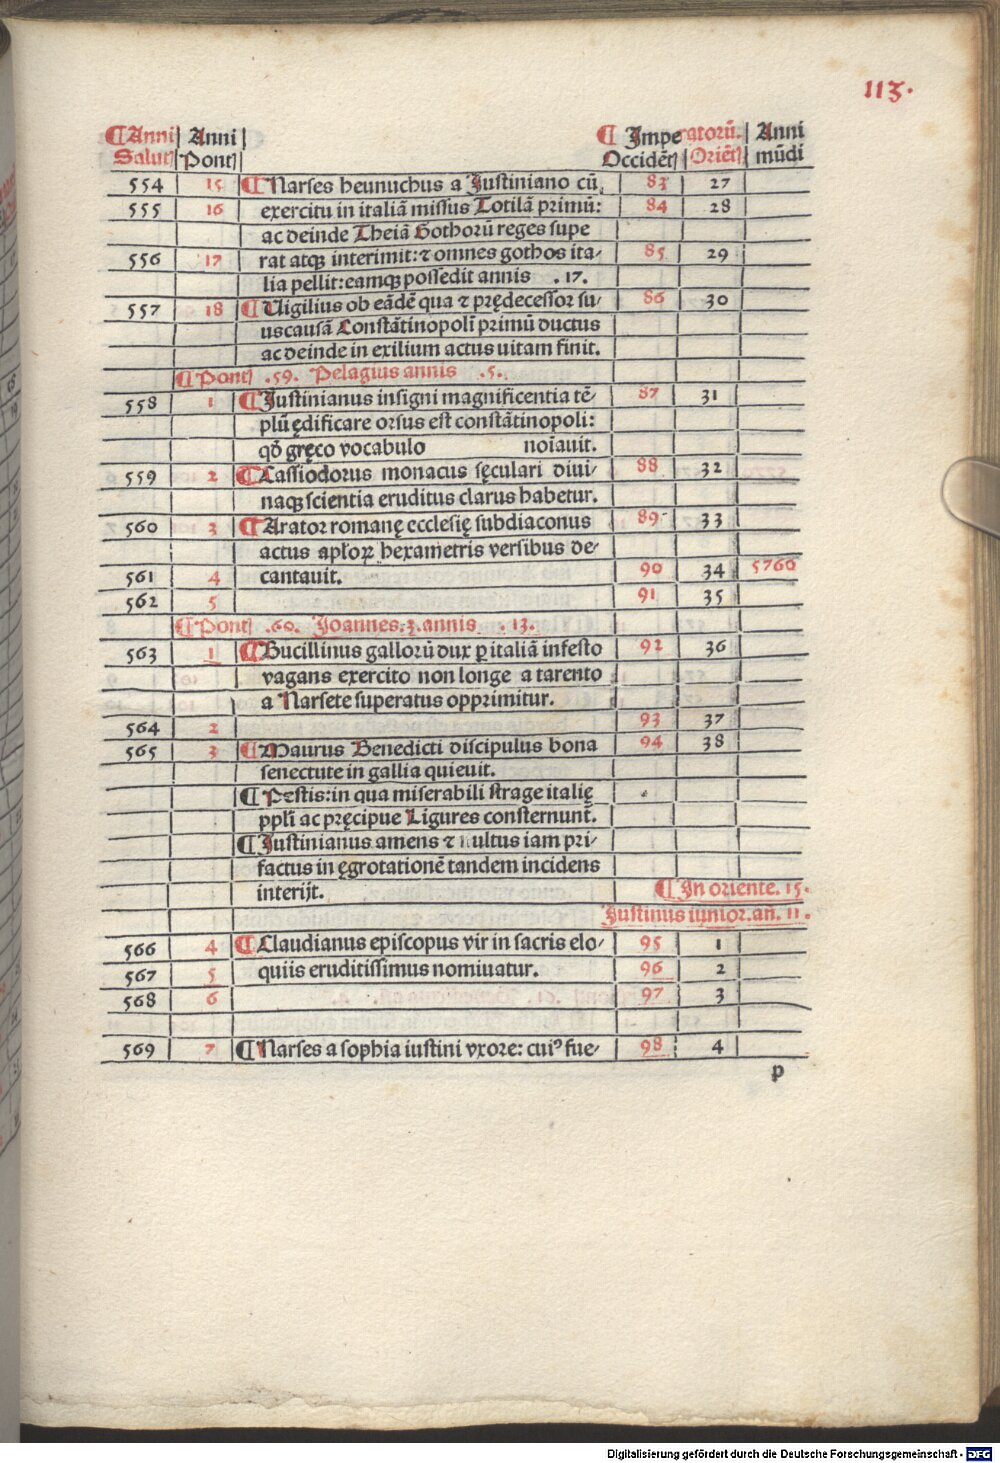 113.
¶ Anni | Anni | ¶ Imperatorū. | Anni
Salutꝭ | Pontꝭ | Occidētꝭ | Oriētꝭ | mūdi
554 | 15 | ¶ Narses heunuchus a Justiniano cū | 83 | 27
555 | 16 | exercitu in italiā missus Totilā primū: | 84 | 28
ac deinde Theiā Gothorū reges supe
556 | 17 | rat atqꝫ interimit: ⁊ omnes gothos ita- | 85 | 29
lia pellit: eamqꝫ possedit annis .17.
557 | 18 | ¶ Uigilius ob eādē qua ⁊ prędecessor su- | 86 | 30
us causā Constātinopolī primū ductus
ac deinde in exilium actus uitam finit.
¶ Pontꝭ .59. Pelagius annis .5.
558 | 1 | ¶ Justinianus insigni magnificentia tē- | 87 | 31
plū ędificare orsus est constātinopoli:
qđ gręco vocabulo noīauit.
559 | 2 | ¶ Cassiodorus monacus sęculari diui- | 88 | 32
naqꝫ scientia eruditus clarus habetur.
560 | 3 | ¶ Arator romanę ecclesię subdiaconus | 89 | 33
actus apłoꝝ hexametris versibus de-
561 | 4 | cantauit. | 90 | 34 | 5760
562 | 5 | 91 | 35
¶ Pontꝭ .60. Joannes.3.annis .13.
563 | 1 | ¶ Bucillinus gallorū dux ꝑ italiā infesto | 92 | 36
vagans exercito non longe a tarento
a Narsete superatus opprimitur.
564 | 2 | 93 | 37
565 | 3 | ¶ Maurus Benedicti discipulus bona | 94 | 38
senectute in gallia quieuit.
¶ Pestis: in qua miserabili strage italię
ppłi ac pręcipue Ligures consternunt̄.
¶ Justinianus amens ⁊ ultus iam pri-
factus in ęgrotationē tandem incidens
interijt. | ¶ In oriente. 15.
Justinus iunior. añ. 11.
566 | 4 | ¶ Claudianus episcopus vir in sacris elo- | 95 | 1
567 | 5 | quiis eruditissimus nomiuatur. | 96 | 2
568 | 6 | 97 | 3
569 | 7 | ¶ Narses a sophia iustini vxore: cuiꝰ fue- | 98 | 4
p
Digitalisierung gefördert durch die Deutsche Forschungsgemeinschaft - DFG